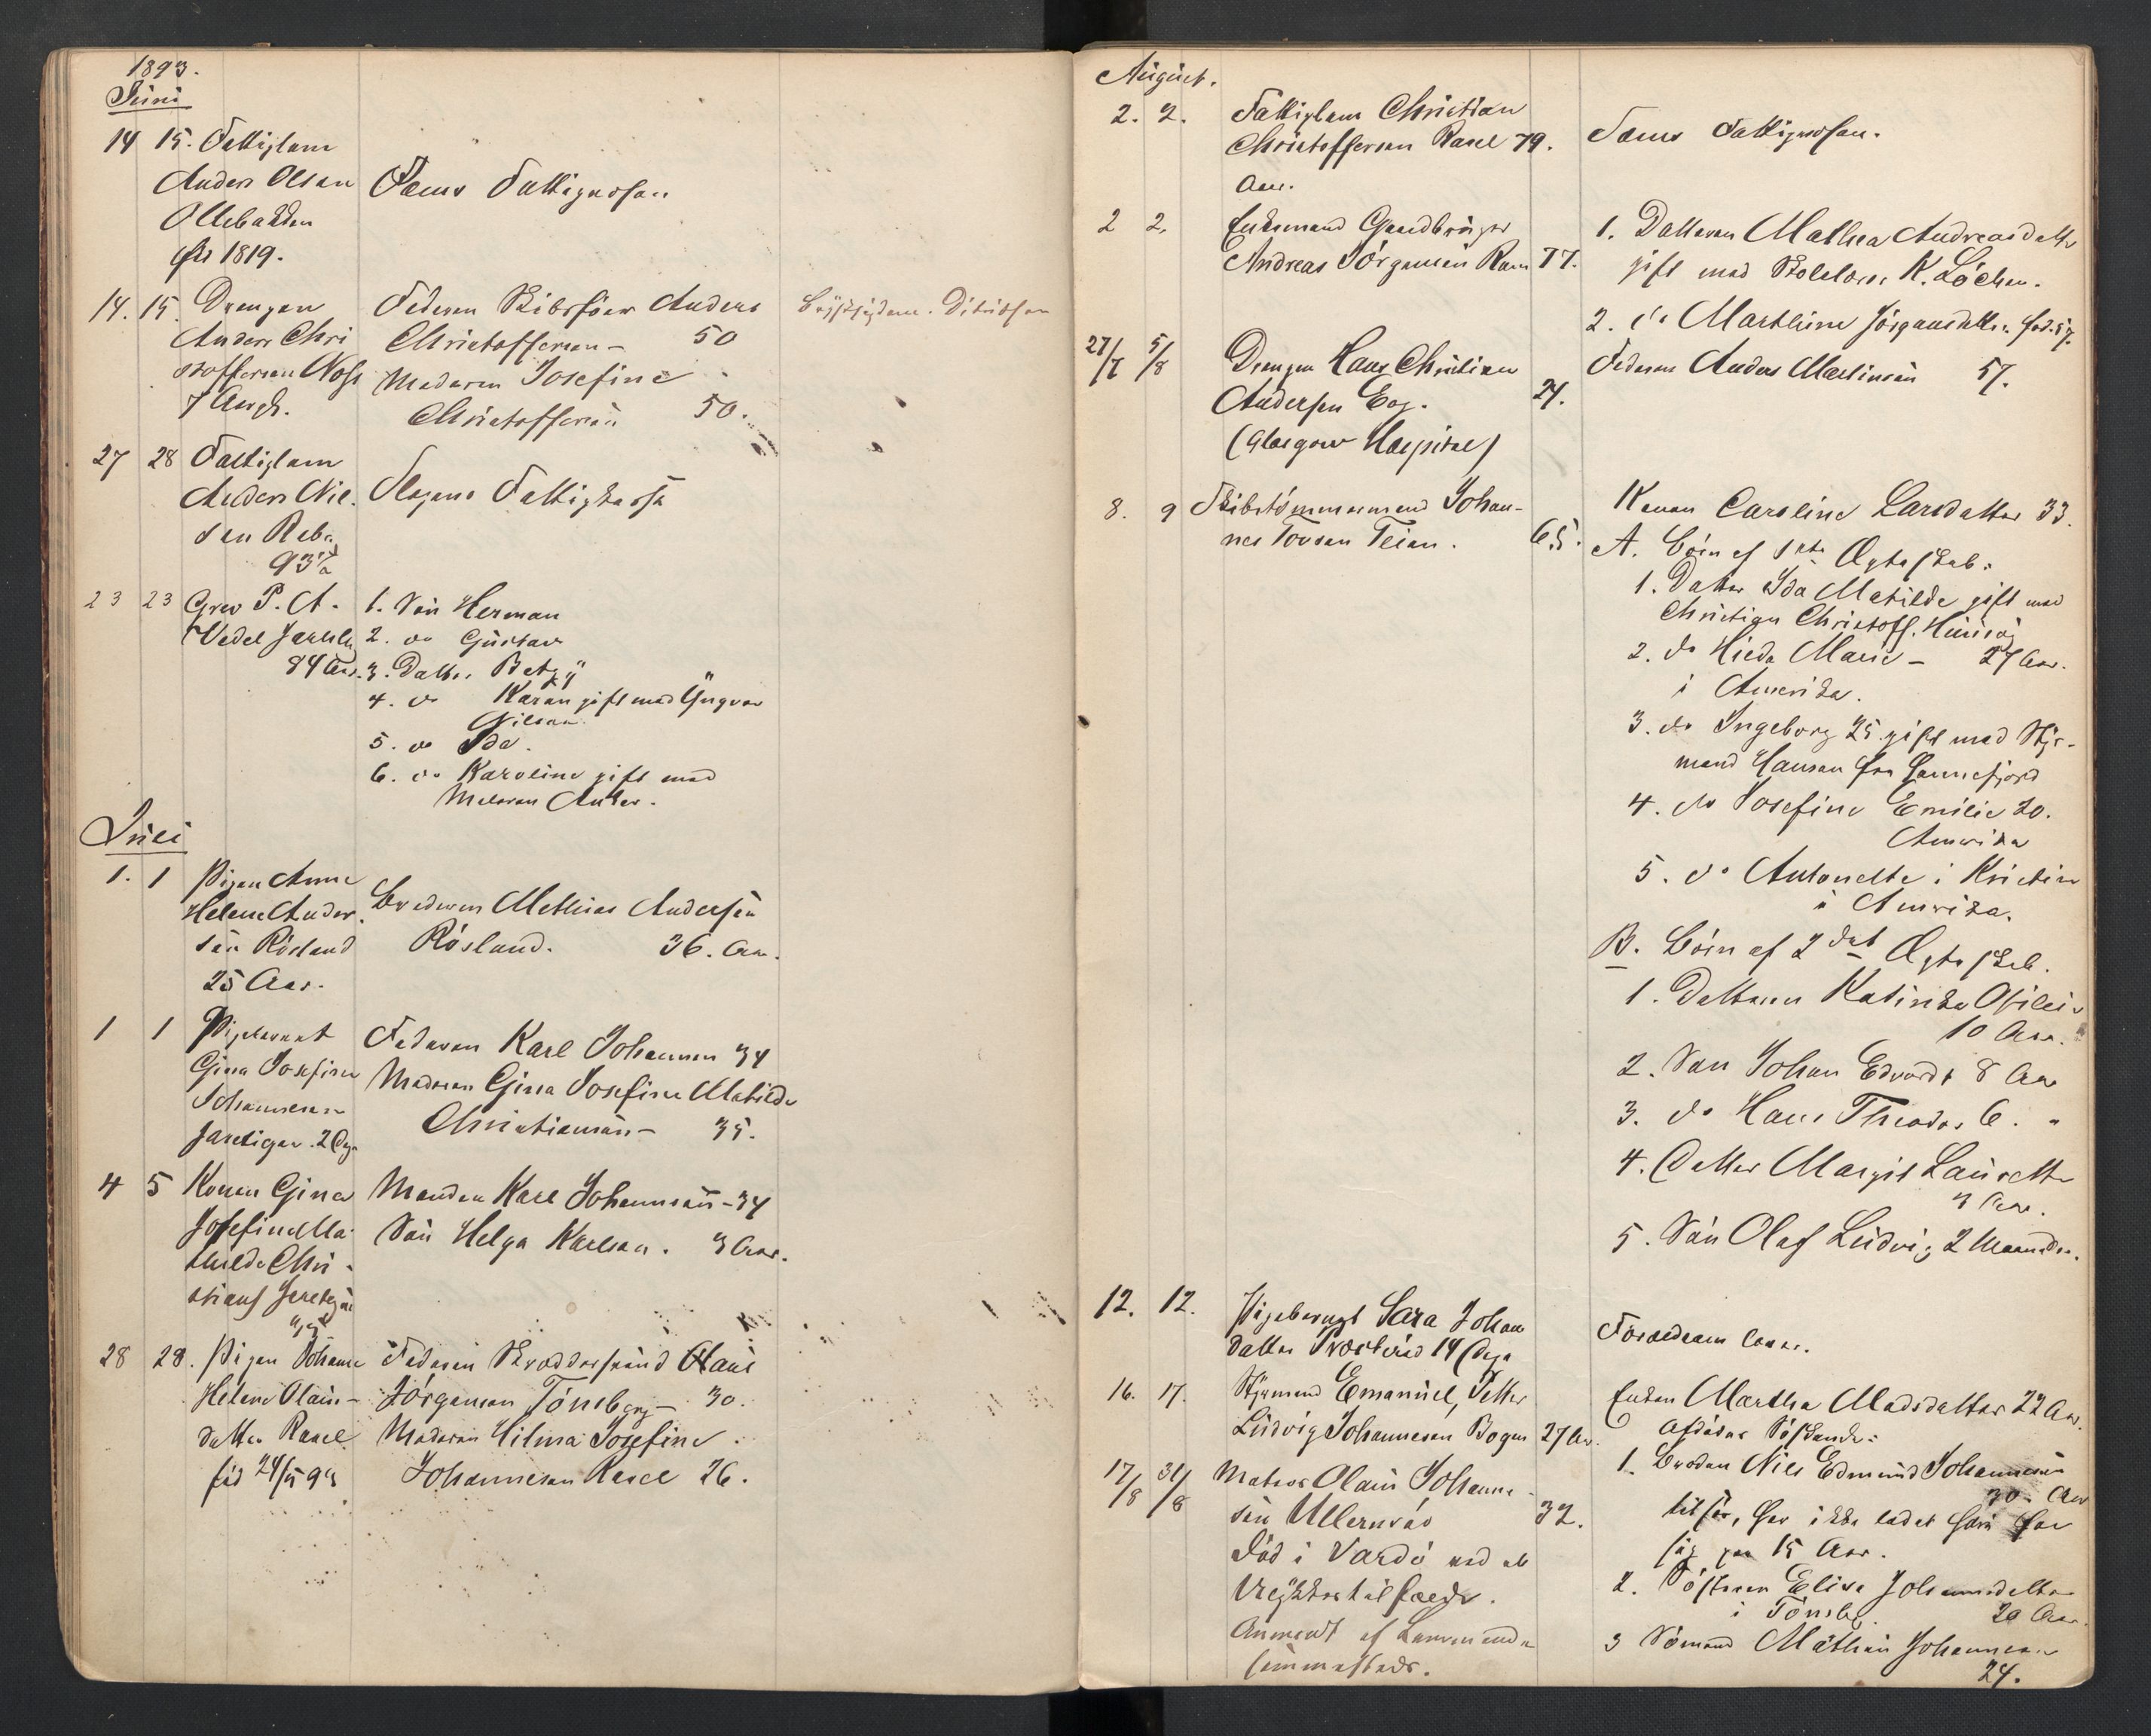 1893.
Juni
14 15. Fattiglem
Anders Olsen
Ollebakken
født 1819.
Sems Fattigvæsen
14. 15. Drengen
Anders Chri
stoffersen
7 Aar gl.
Faderen Skibsfører Anders
Christoffersen - 50
Moderen Josefine
Christoffersen 50.
27 28 Fattiglem
Anders Niel
sen
93 a
Slagens Fattigkasse
23 23 Grev P. A.
Wedel Jarlsb
84 Aar.
1. Søn Herman
2. do Gustav
3. Datter Betzÿ
4. do Karen gift med Yngvar
Nielsen
5. do Ida.
6. do Karoline gift med
Anker.
Juli
1. 1 Pigen Anne
Helene Ander
sen Røsland
25 Aar.
Broderen Mathias Andersen
Røsland. 36. Aar.
1 1 Pigebarnet
Gina Josefine
Johannesen
2 Dge
Faderen Karl Johannesen 34
Moderen Gina Josefine Matilde
Christiansen - 35.
4 5 Konen Gina
Josefine Ma
thilde Chri-
stians
Manden Karl Johannesen - 34
Søn Helga Karlsen. 3 Aar.
28 28. Pigen Johanne
Helene Olaus-
datter Rasel
fød 24/5 93
Faderen Skræddersvend Olaus
Jørgensen Tönsberg - 30.
Moderen Hilma Josefine
Johannesen Rasel 26.
August.
2. 2. Fattiglem Christian
Christoffersen Rasel 79.
Aar.
Sems Fattigvæsen.
2 2. Enkemand Gaardbruger
Andreas Jørgensen Ram 77.
1. Datteren Mathea Andreasdatter
gift med Skolelærer K. Løchen.
2. do Marthine Jörgensdatter
27/7 5/8 Drengen Hans Christian
Andersen Eeg. 24.
(Glasgow Hospital)
Faderen Anders Martinsen 57.
8. 9 Skibstømmermand Johan-
nes Torsen Teien. 65.
Konen Caroline Larsdatter 33.
A. Börn af 1ste Ægteskab:
1. Datter Ida Matilde gift med
Christian Christoff.
2. do Marie - 27 Aar.
i Amerika.
3. do Ingeborg 25 gift med Styr-
mand Hansen fra Sannefjord
4. do Josefine Emilie 20.
Amerika
5. do Antonette
i Amerika.
B. Börn af 2det Ægteskab.
1. Datteren Katinka
10 Aar.
2. Søn Johan Edvardt 8 Aar
3. do Hans Theodor 6. "
4. Datter Margit Laurette
3 Aar.
5. Søn Olaf Ludvig 2 Maaneder.
12. 12. Pigebarnet Sara Johan
datter 14 Dage
Forældrene lever.
16. 17. Styrmand Emanuel, Petter
Ludvig Johannesen Bogen 27 Aar.
Enken Martha Madsdatter 22 Aar.
Afdødes Søskende:
1. Broder Nils Edmund Johannesen
30 Aar
tilsøs, har ikke ladet høre fra
sig paa 15 Aar.
2. Søsteren Elise Johannesdatter
i Tönsbg. 20 Aar.
3 Sømand Mathias Johannesen
24.
17/8 31/8 Matros Olaus Johanne
sen Ullernrød 32.
Død i Vardø ved et
Ulykkestilfælde.
Anmeldt af Lensmanden
sammesteds.